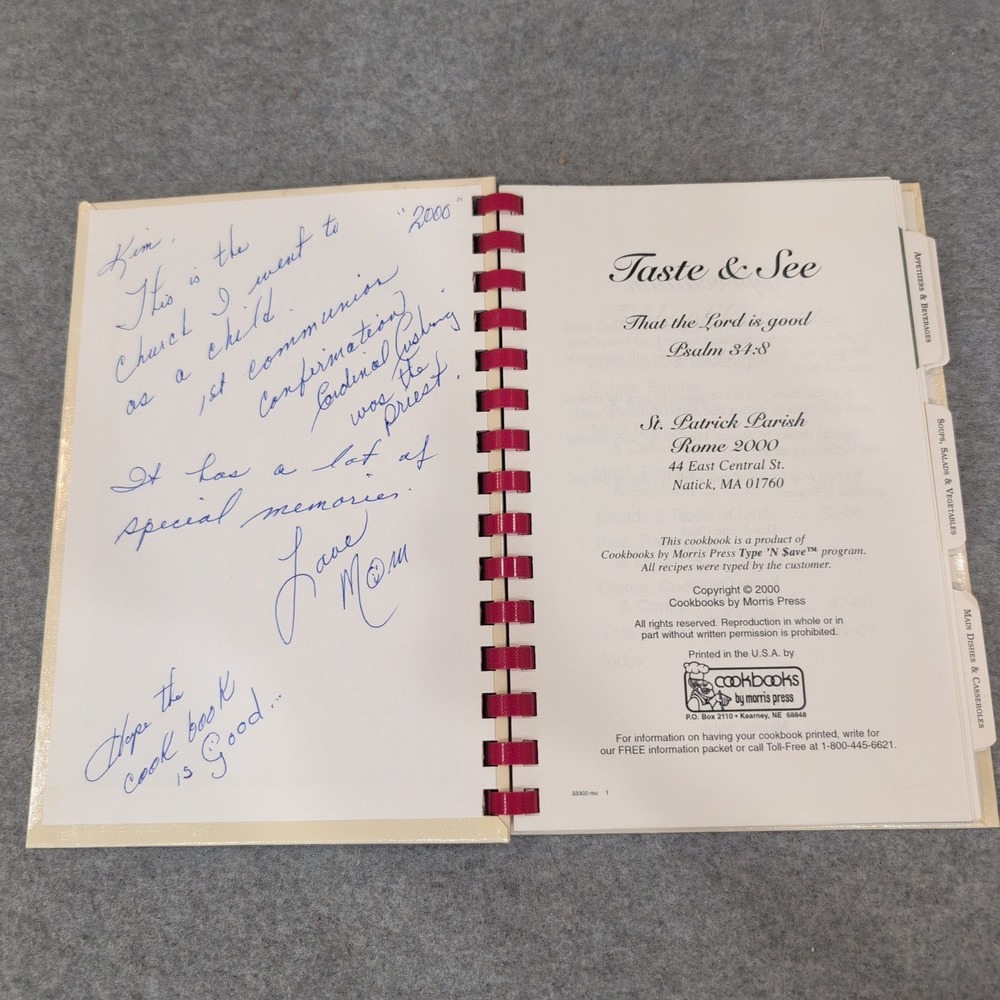 "2000"
Kim,
This is the
church I went to
as a child.
1st communion
confirmation
Cardinal Cushing
was the
Priest.
It has a lot of
special memories.
Love
Mom
Hope the
cook book
is Good...
Taste & See
That the Lord is good
Psalm 34:8
St. Patrick Parish
Rome 2000
44 East Central St.
Natick, MA 01760
This cookbook is a product of
Cookbooks by Morris Press Type 'N $ave™ program.
All recipes were typed by the customer.
Copyright © 2000
Cookbooks by Morris Press
All rights reserved. Reproduction in whole or in
part without written permission is prohibited.
Printed in the U.S.A. by
cookbooks
by morris press
P.O. Box 2110 • Kearney, NE 68848
For information on having your cookbook printed, write for
our FREE information packet or call Toll-Free at 1-800-445-6621.
33302-mu 1
Appetizers & Beverages
Soups, Salads & Vegetables
Main Dishes & Casseroles